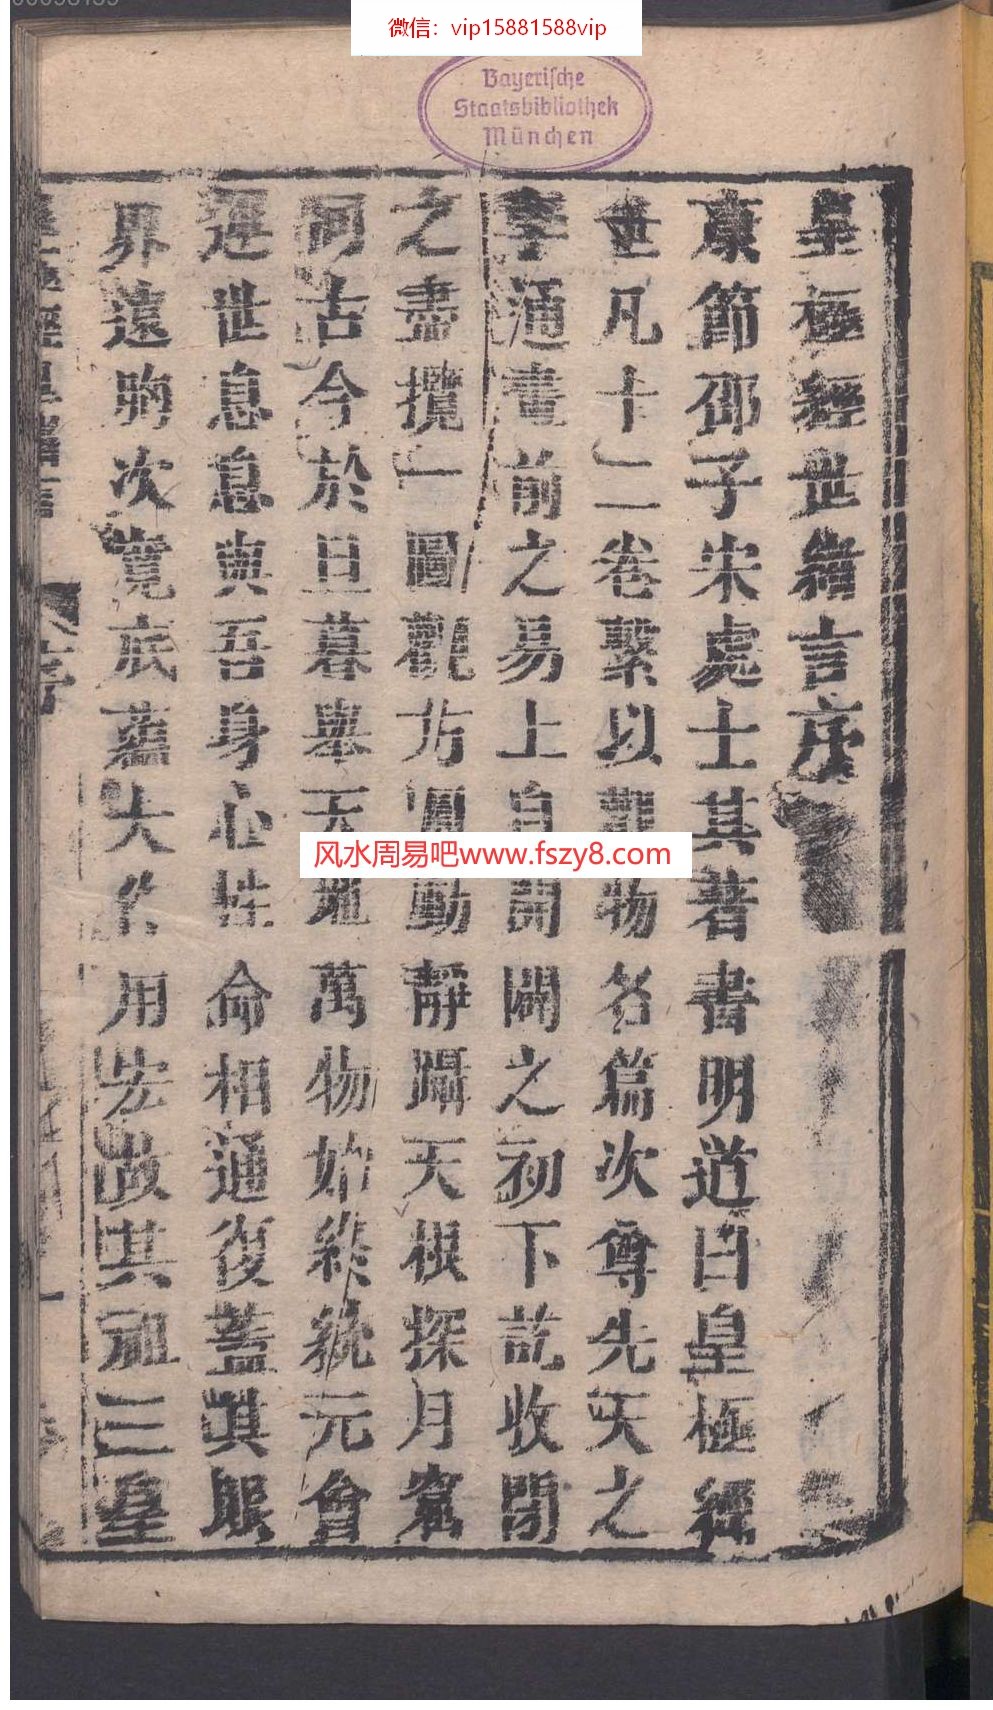 微信：vip15881588vip
Bayerische
Staatsbibliothek
München
皇極經世緒言序
康節邵子宋處士其著書明道曰皇極經
世凡十二卷繫以觀物名篇次尊先天之
學通畫前之易上自開闢之初下訖收閉
之盡攬一圖觀方圓動靜躡天根探月窟
洞古今於旦暮舉天地萬物始終統元會
運世息息與吾身心性命相通復蓋其眼
界遠胸次寬底蘊大作用宏故其祖三皇
風水周易吧www.fszy8.com